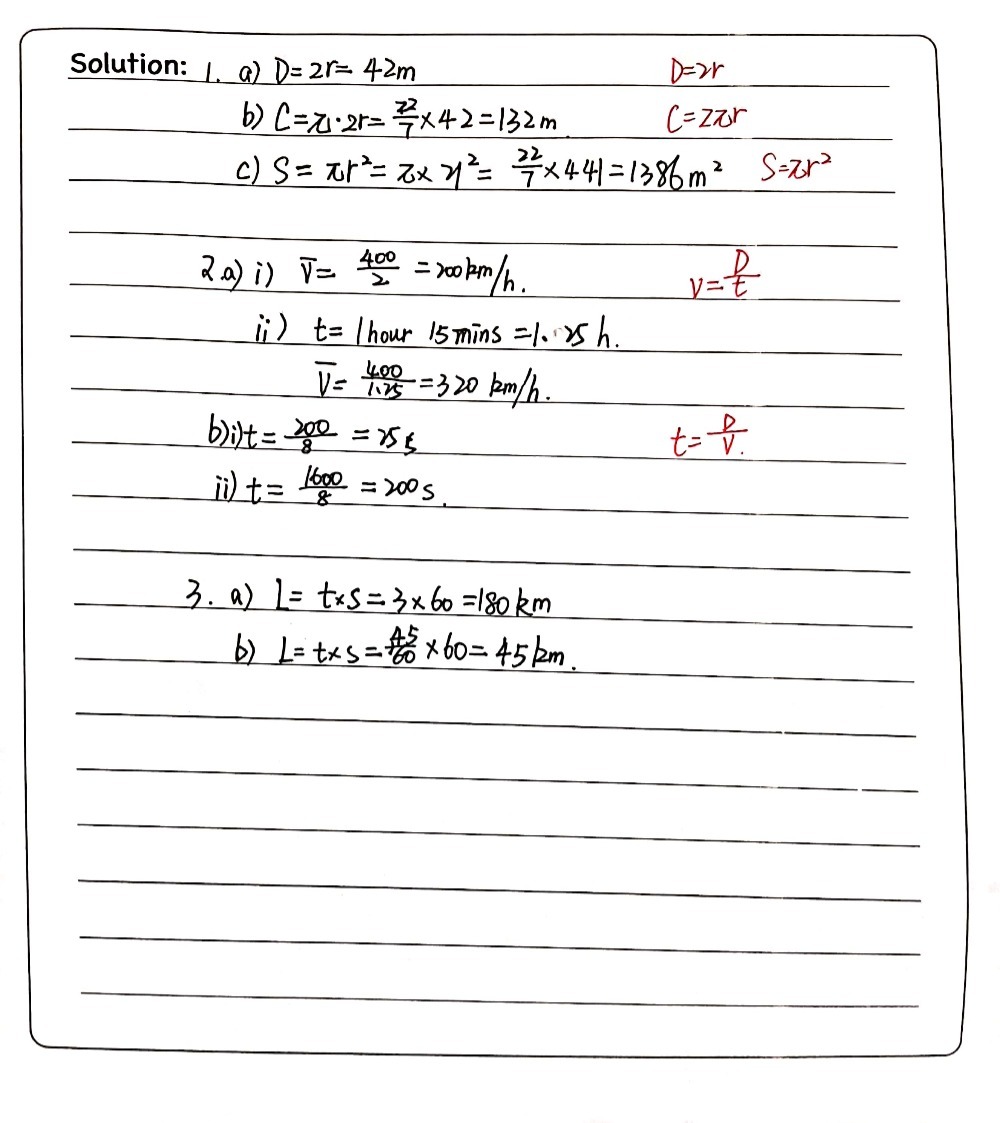 Solution: 1. a) D=2r= 42m D=2r
b) C=π·2r= 22/7 ×42=132m C=2πr
c) S= πr²= π× 21²= 22/7 ×441=1386m² S=πr²
2 a) i) V̄= 400/2 =200km/h. V=D/t
ii) t= 1hour 15mins =1.25 h.
V̄= 400/1.25 =320 km/h.
b)i)t= 200/8 =25s t=D/V.
ii) t= 1600/8 =200s.
3. a) L= t×s=3×60=180km
b) L=t×s= 45/60 ×60=45km.